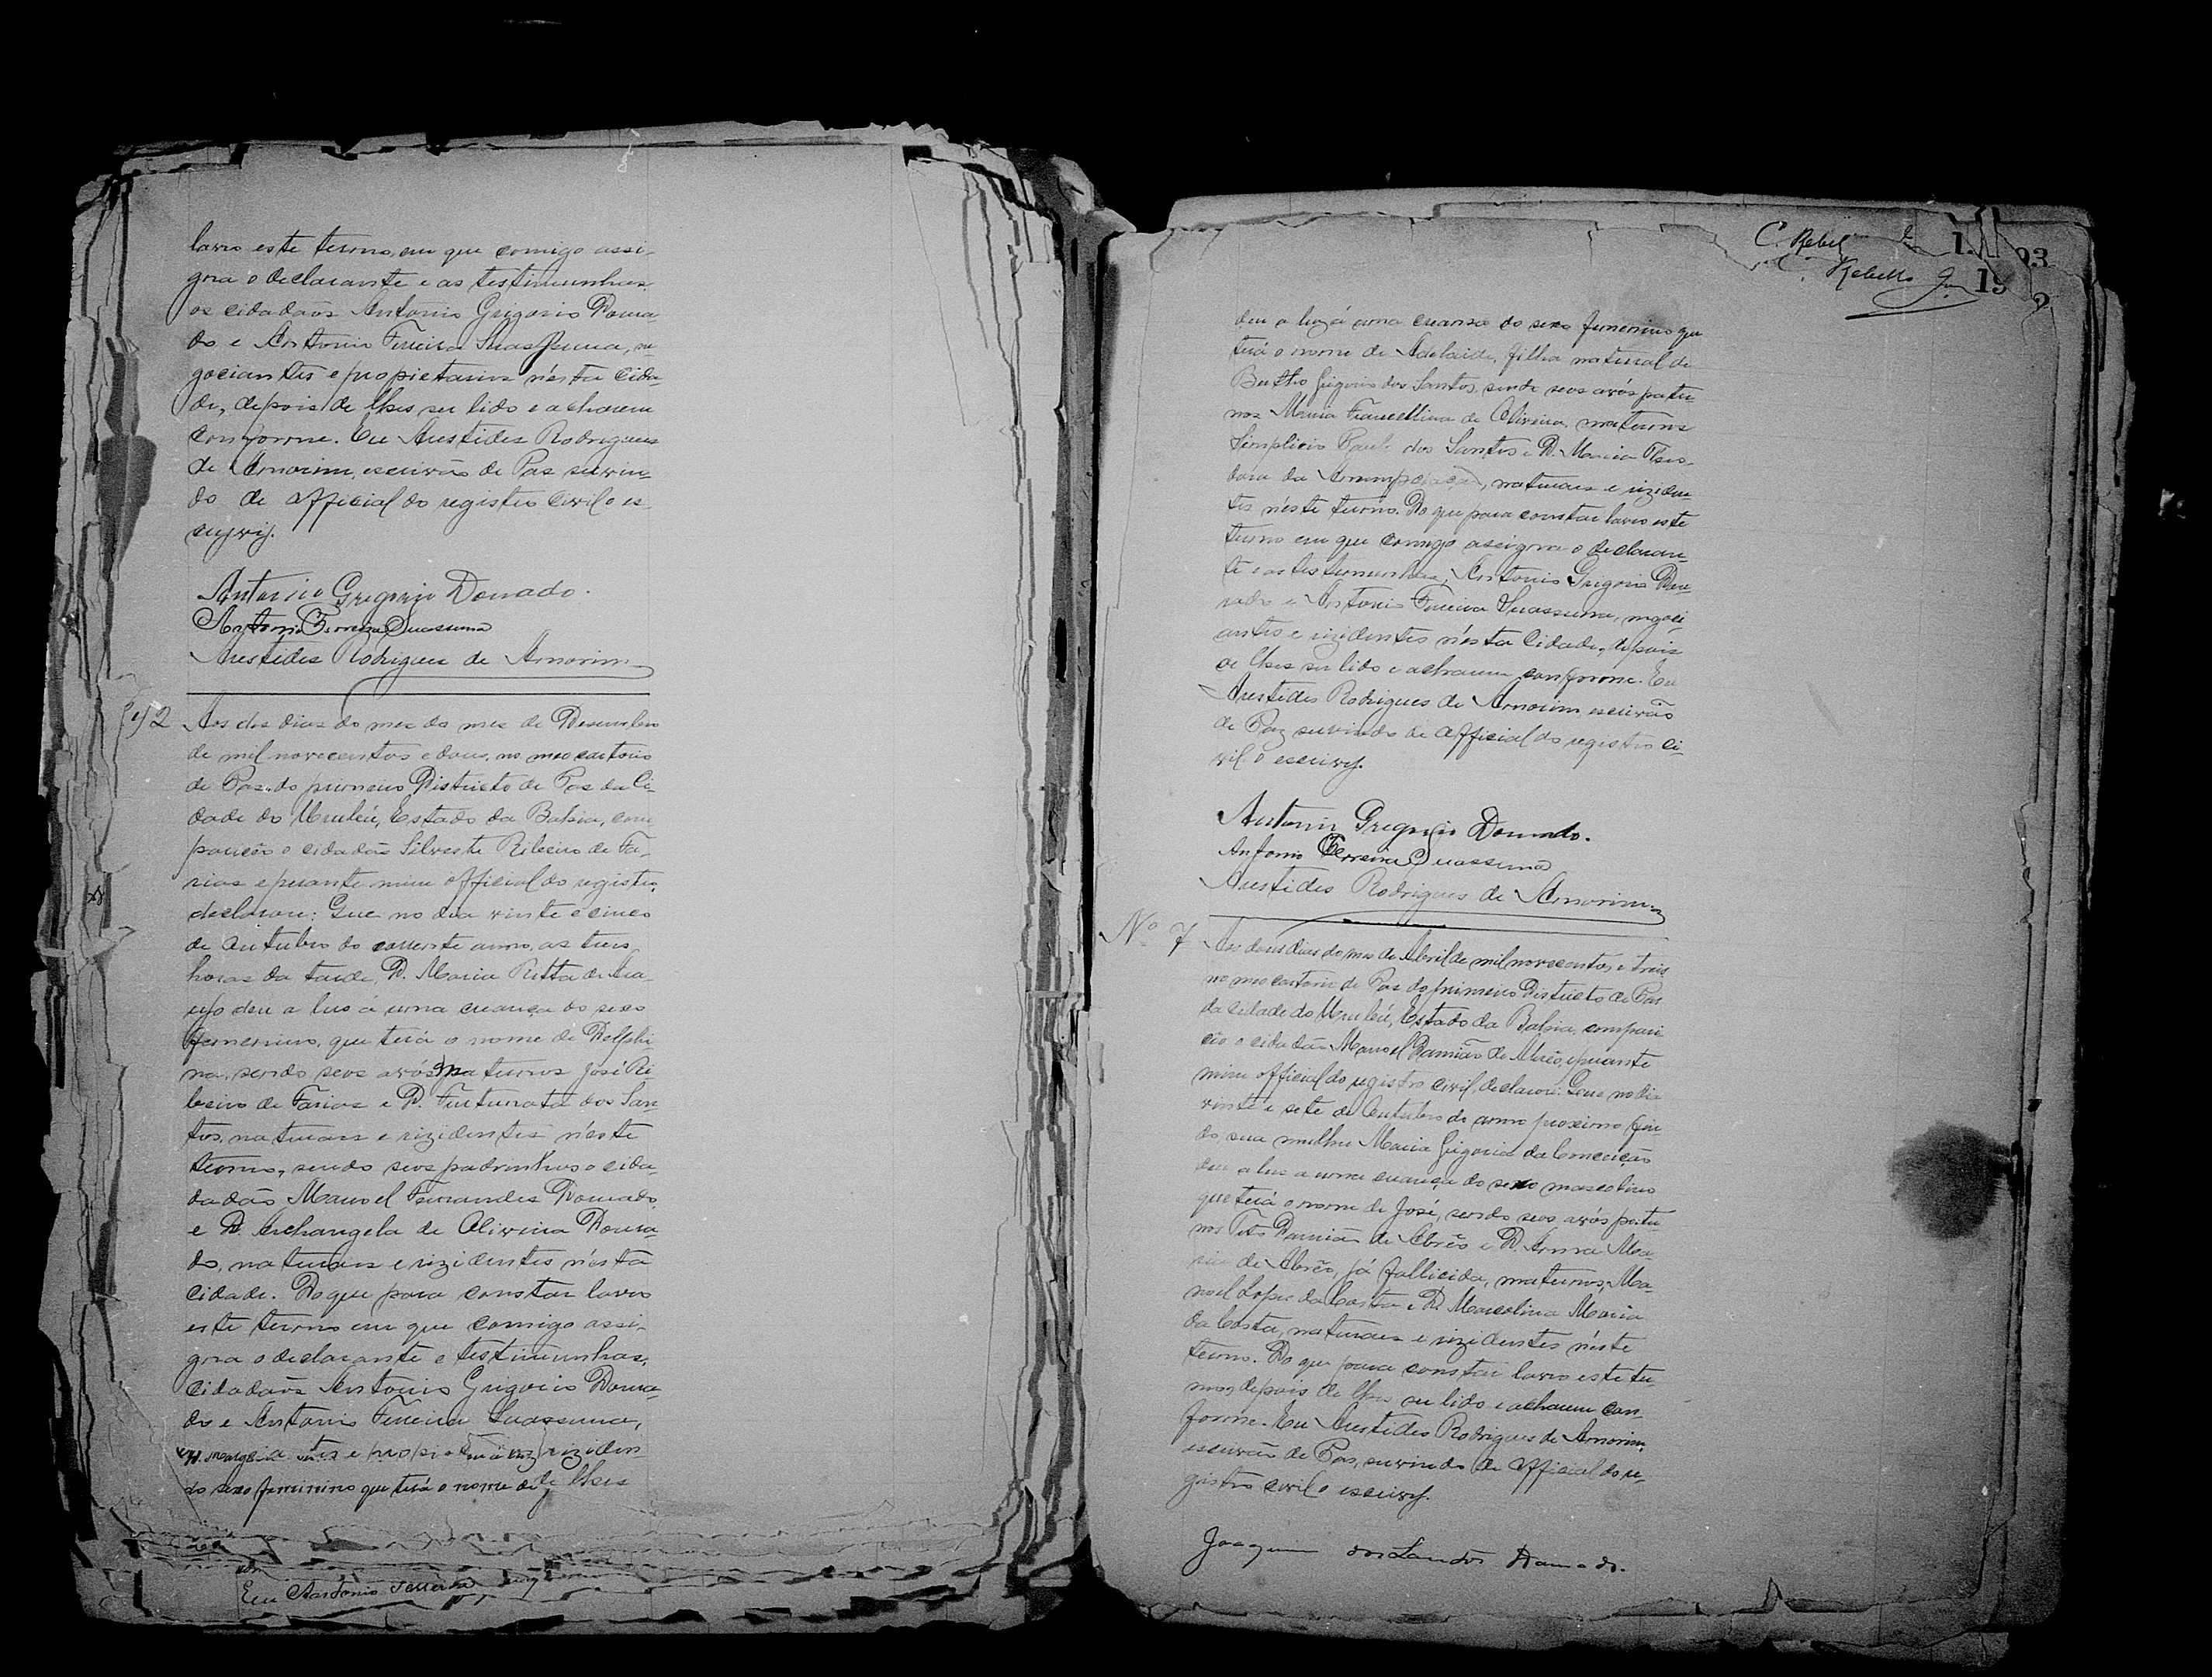 lavro este termo, em que comigo assi-
gna o declarante e as testimunhas
os cidadãos Antonio Grigorio Doura-
do e Antonio Ferreira Suassuna, ne-
gociantes e propietarios n'esta cida-
de, depois de lhes ser lido e acharem
conforme. Eu Arestides Rodrigues
de Amorim, escrivão de Pas servin-
do de official do registro civil o es-
crevy.
Antonio Gregorio Dourado.
Antonio Ferreira Suassuna
Arestides Rodrigues de Amorim
Aos dos dias do mes do mes de Desembro
de mil novecentos e dous, no meo cartorio
de Pas do primeiro Districto de Pas da Ci-
dade do Urubú, Estado da Bahia, com
pareceo o cidadão Silveste Ribeiro de Fa-
rias e perante mim official do registro,
declarou: Que no dia vinte e cinco
de outubro do corrente anno, as tres
horas da tarde, D. Maria Ritta de Ara-
ujo deu a lus á uma creança do sexo
femenino, que terá o nome de Delphi-
na, sendo seos avós maternos José Ri-
beiro de Farias e D. Furtunata dos San-
tos, naturaes e rizidentes n'este
termo, sendo seos padrinhos o cida-
dadão Manoel Fernandes Dourado
e D. Archangela de Oliveira Doura-
do, naturaes e rizidentes n'esta
cidade. Do que para constar lavro
este termo em que comigo assi-
gna o declarante e testimunhas,
cidadãos Antonio Grigorio Doura-
do e Antonio Ferreira Suassuna,
e propietarios riziden
do sexo feminino que terá o nome de lhes
Eu Antonio Ferreira
C. Rebel
Rebello Jor
deu a luz á uma creansa do sexo femenino que
terá o nome de Adelaide, filha natural de
Bertho Grigorio dos Santos, sendo seos avós pater-
nos Maria Francellina de Oliveira, maternos
Simplicio Paulo dos Santos e D. Maria Theo-
dora da Anumpciação, naturaes e riziden-
tes n'este termo. Do que para constar lavro este
termo em que comigo assigna o declaran-
te e as testemunhas, Antonio Grigorio Dou-
rado e Antonio Ferreira Suassuna, negoci-
antes e rizidentes n'esta Cidade, depois
de lhes ser lido e acharem conforme. Eu
Arestides Rodrigues de Amorim escrivão
de Paz servindo de official do registro ci-
vil o escrevy.
Antonio Gregorio Dourado.
Antonio Ferreira Suassuna
Arestides Rodrigues de Amorim
Nº 7 Aos dous dias do mes de Abril de mil novecentos e treis
no meo cartorio de Pas do primeiro Districto de Pas
da cidade do Urubú, Estado da Bahia, compare-
ceo o cidadão Manoel Damião de Abrêo, e perante
mim official do registro civil, declarou: Que no dia
vinte e sete de Outubro do anno proximo fin-
do, sua mulher Maria Grigoria da Conceição
deu a lus a uma creança do sexo mascolino
que terá o nome de José, sendo seos avós pater-
nos Tito Damião de Abrêo e D. Anna Ma-
ria de Abrêo, já fallicida, maternos, Ma-
noel Lopes da Costa e D. Marcolina Maria
da Costa, naturaes e rizidentes n'este
termo. Do que para constar lavro este ter-
mo, depois de lhes ser lido e acharem con-
forme. Eu Arestides Rodrigues de Amorim,
escrivão de Pas, servindo de official do re-
gistro civil o escrevy.
Joaquim dos Santos Dourado.